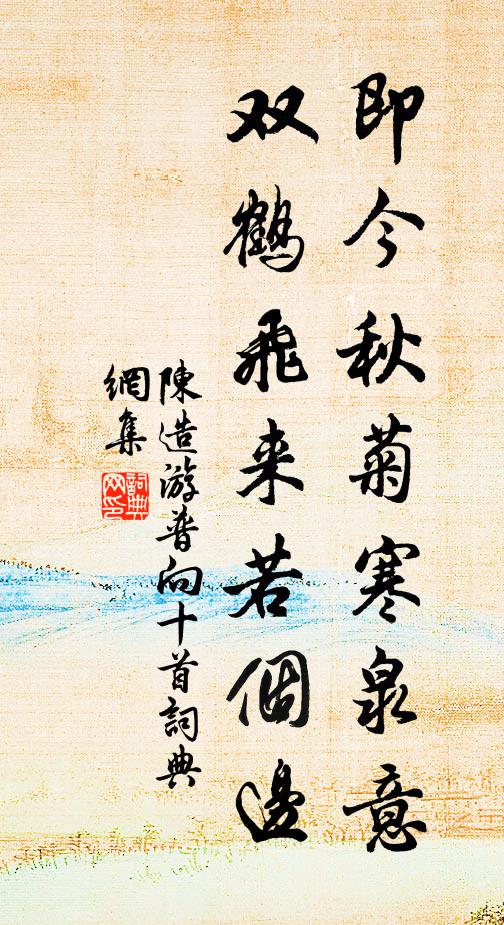 即今秋菊寒泉意
双鹤飛来若個邊
陳造游普向十首詞典
網集
詞典
网印